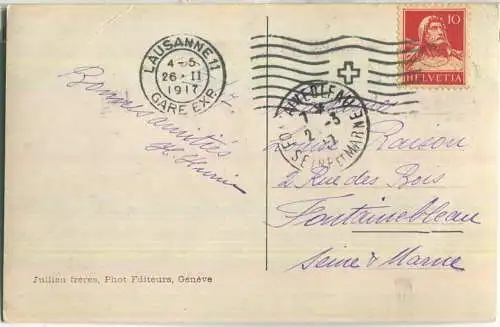 LAUSANNE 11
4-5
26·II
1917
GARE EXP.
10
HELVETIA
Bonnes amitiés
FONTAINEBLEAU
7*
2-3
17
SEINE ET MARNE
Raison
2 Rue des Bois
Fontainebleau
Seine & Marne
Jullien frères, Phot Editeurs, Genève